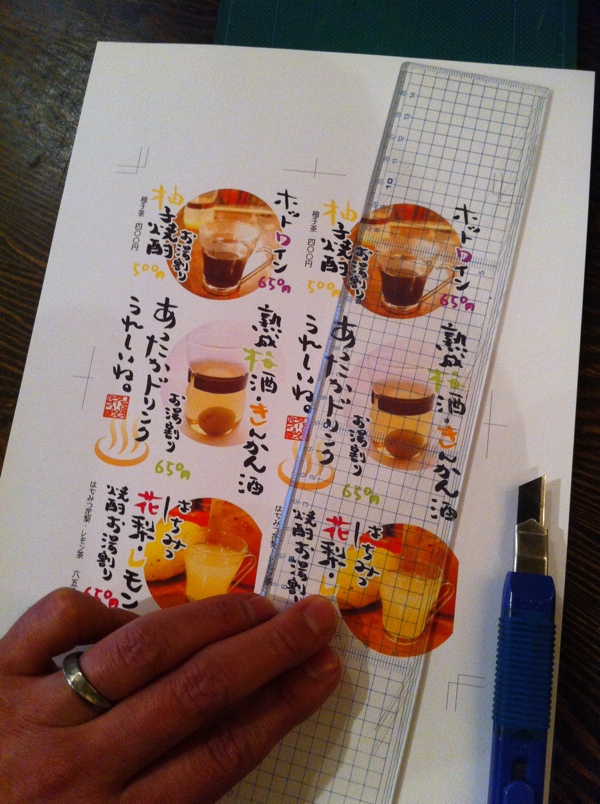 ホットワイン
650円
柚子焼酎
お湯割り
500円
柚子茶 四〇〇円
熟成梅酒・きんかん酒
お湯割り
650円
あったかドリンク
うれしいね。
はちみつ
花梨・レモン
焼酎お湯割り
650円
はちみつ花梨・レモン茶 六五
ホットワイン
650円
柚子焼酎
お湯割り
500円
柚子茶 四〇〇円
熟成梅酒・きんかん酒
お湯割り
650円
あったかドリンク
うれしいね。
はちみつ
花梨・レ
焼酎お湯割り
はちみつ花梨